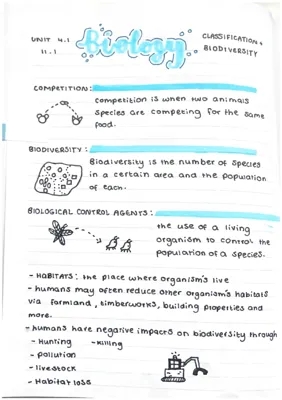 UNIT 4.1
11.1
Biology
CLASSIFICATION +
BIODIVERSITY
COMPETITION:
competition is when two animals
species are competing for the same
food.
BIODIVERSITY:
Biodiversity is the number of species
in a certain area and the population
of each.
BIOLOGICAL CONTROL AGENTS:
the use of a living
organism to control the
population of a species.
- HABITATS: the place where organism's live
- humans may often reduce other organism's habitats
via farmland, timberworks, building properties and
more.
- humans have negative impacts on biodiversity through
- Hunting - killing
- pollution
- livestock
- Habitat loss